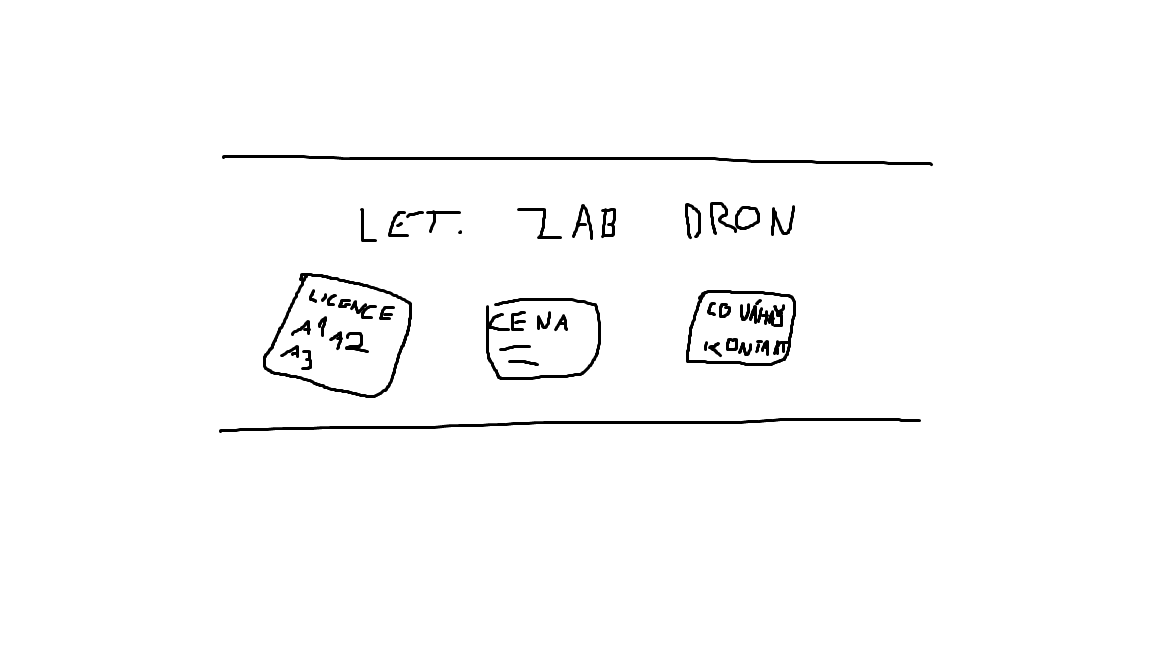 LET. ZAB DRON
LICENCE
A1 A2
A3
CENA
KONTAKT